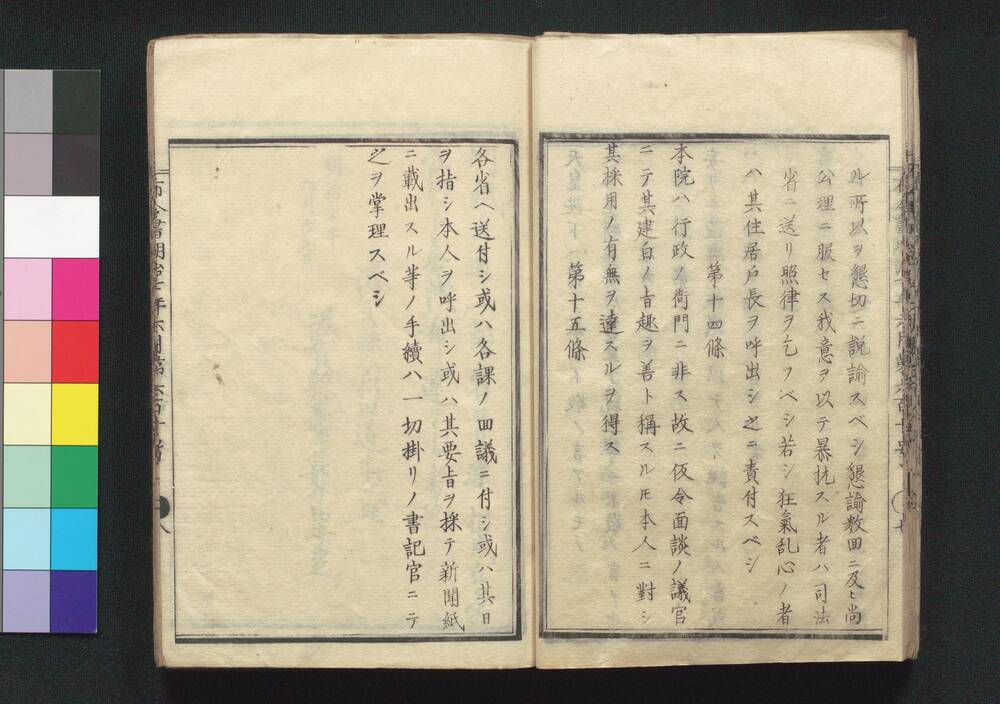 ル所以ヲ懇切ニ説諭スベシ懇諭数回ニ及ヒ尚
公理ニ服セス我意ヲ以テ暴抗スル者ハ司法
省ニ送リ照律ヲ乞フベシ若シ狂氣乱心ノ者
ハ其住居戸長ヲ呼出シ之ニ責付スベシ
第十四條
本院ハ行政ノ衙門ニ非ス故ニ仮令面談ノ議官
ニテ其建白ノ旨趣ヲ善ト稱スルモ本人ニ對シ
其採用ノ有無ヲ達スルヲ得ス
第十五條
各省ヘ送付シ或ハ各課ノ回議ニ付シ或ハ其日
ヲ指シ本人ヲ呼出シ或ハ其要旨ヲ採テ新聞紙
ニ載出スル等ノ手續ハ一切掛リノ書記官ニテ
之ヲ掌理スベシ
八